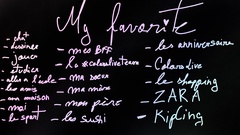 My favorite
- chat
- dessiner
- jouer
- étudier
- aller à l'école
- les amis
- ma maison
- moi
- le sport
- mes BFF
- la
- ma sœur
- ma mère
- mon père
- les sushi
- les anniversaire
- Colorado live
- le shopping
- ZARA
- Kipling